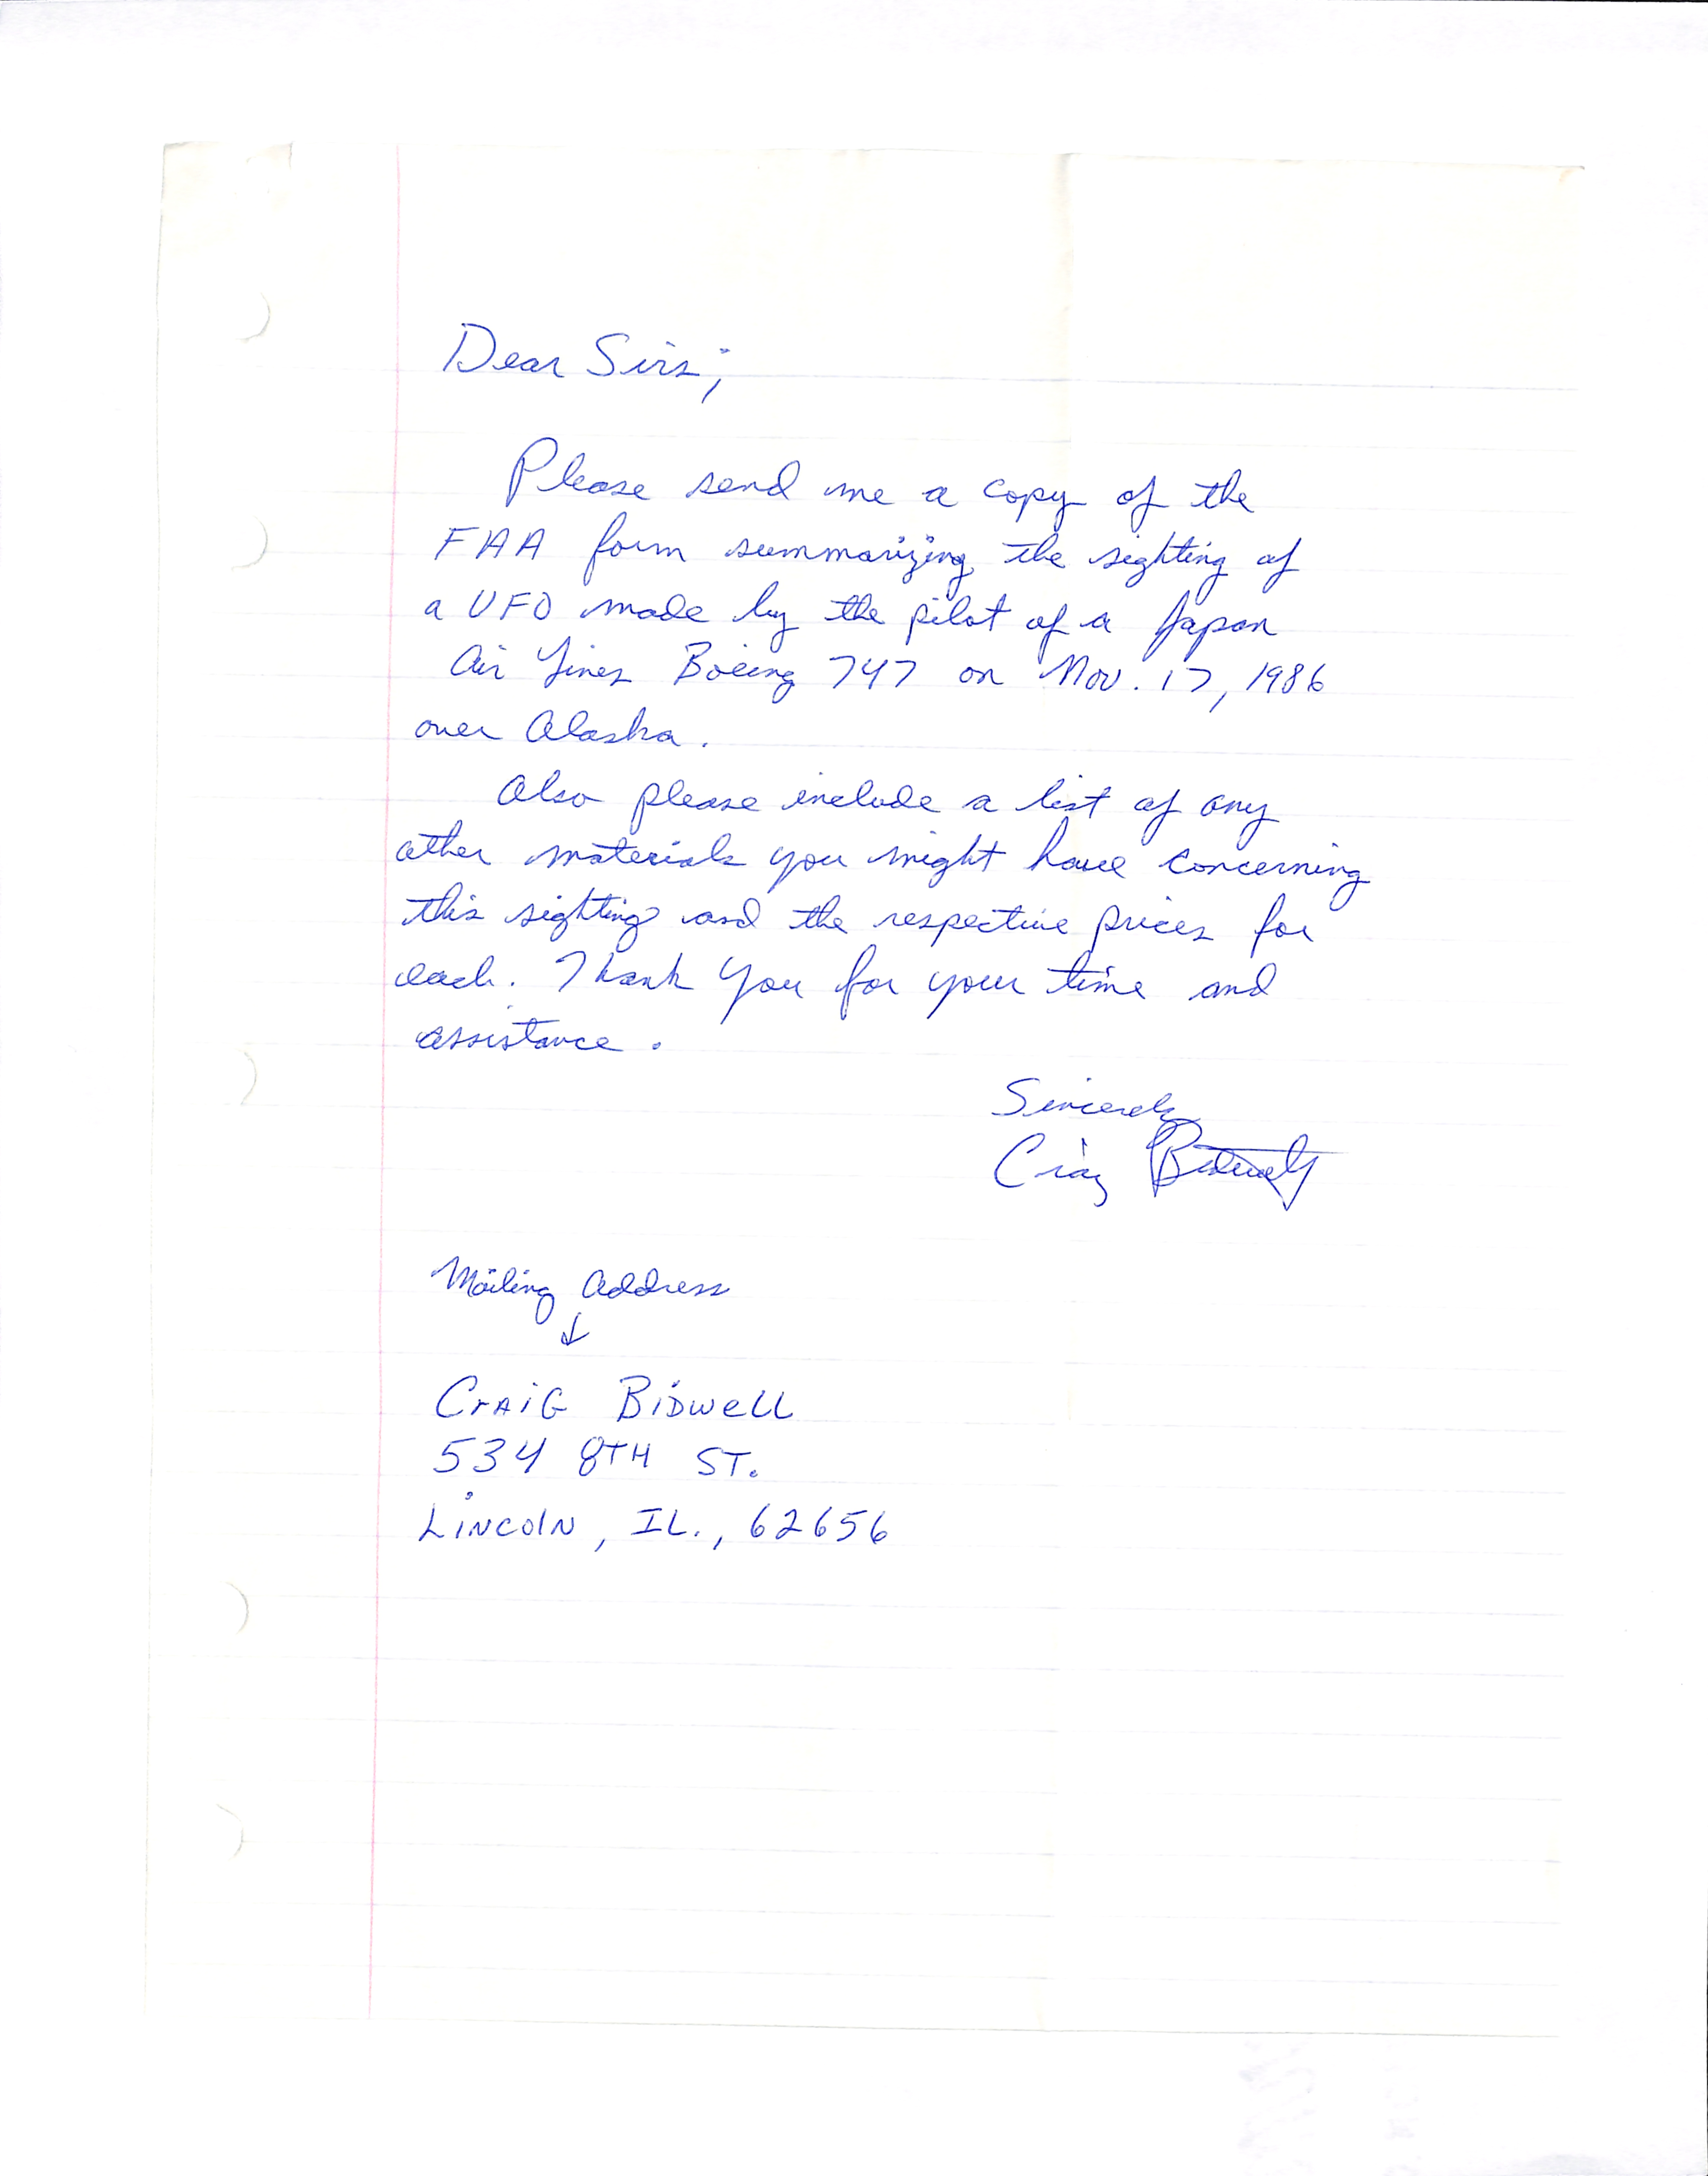 Dear Sirs;
Please send me a copy of the
FAA form summarizing the sighting of
a UFO made by the pilot of a Japan
Air Lines Boeing 747 on Nov. 17, 1986
over Alaska.
Also please include a list of any
other materials you might have concerning
this sighting and the respective prices for
each. Thank you for your time and
assistance.
Sincerely
Craig Bidwell
Mailing Address
↓
CrAiG BiDwell
534 8TH ST.
LiNcolN, IL., 62656